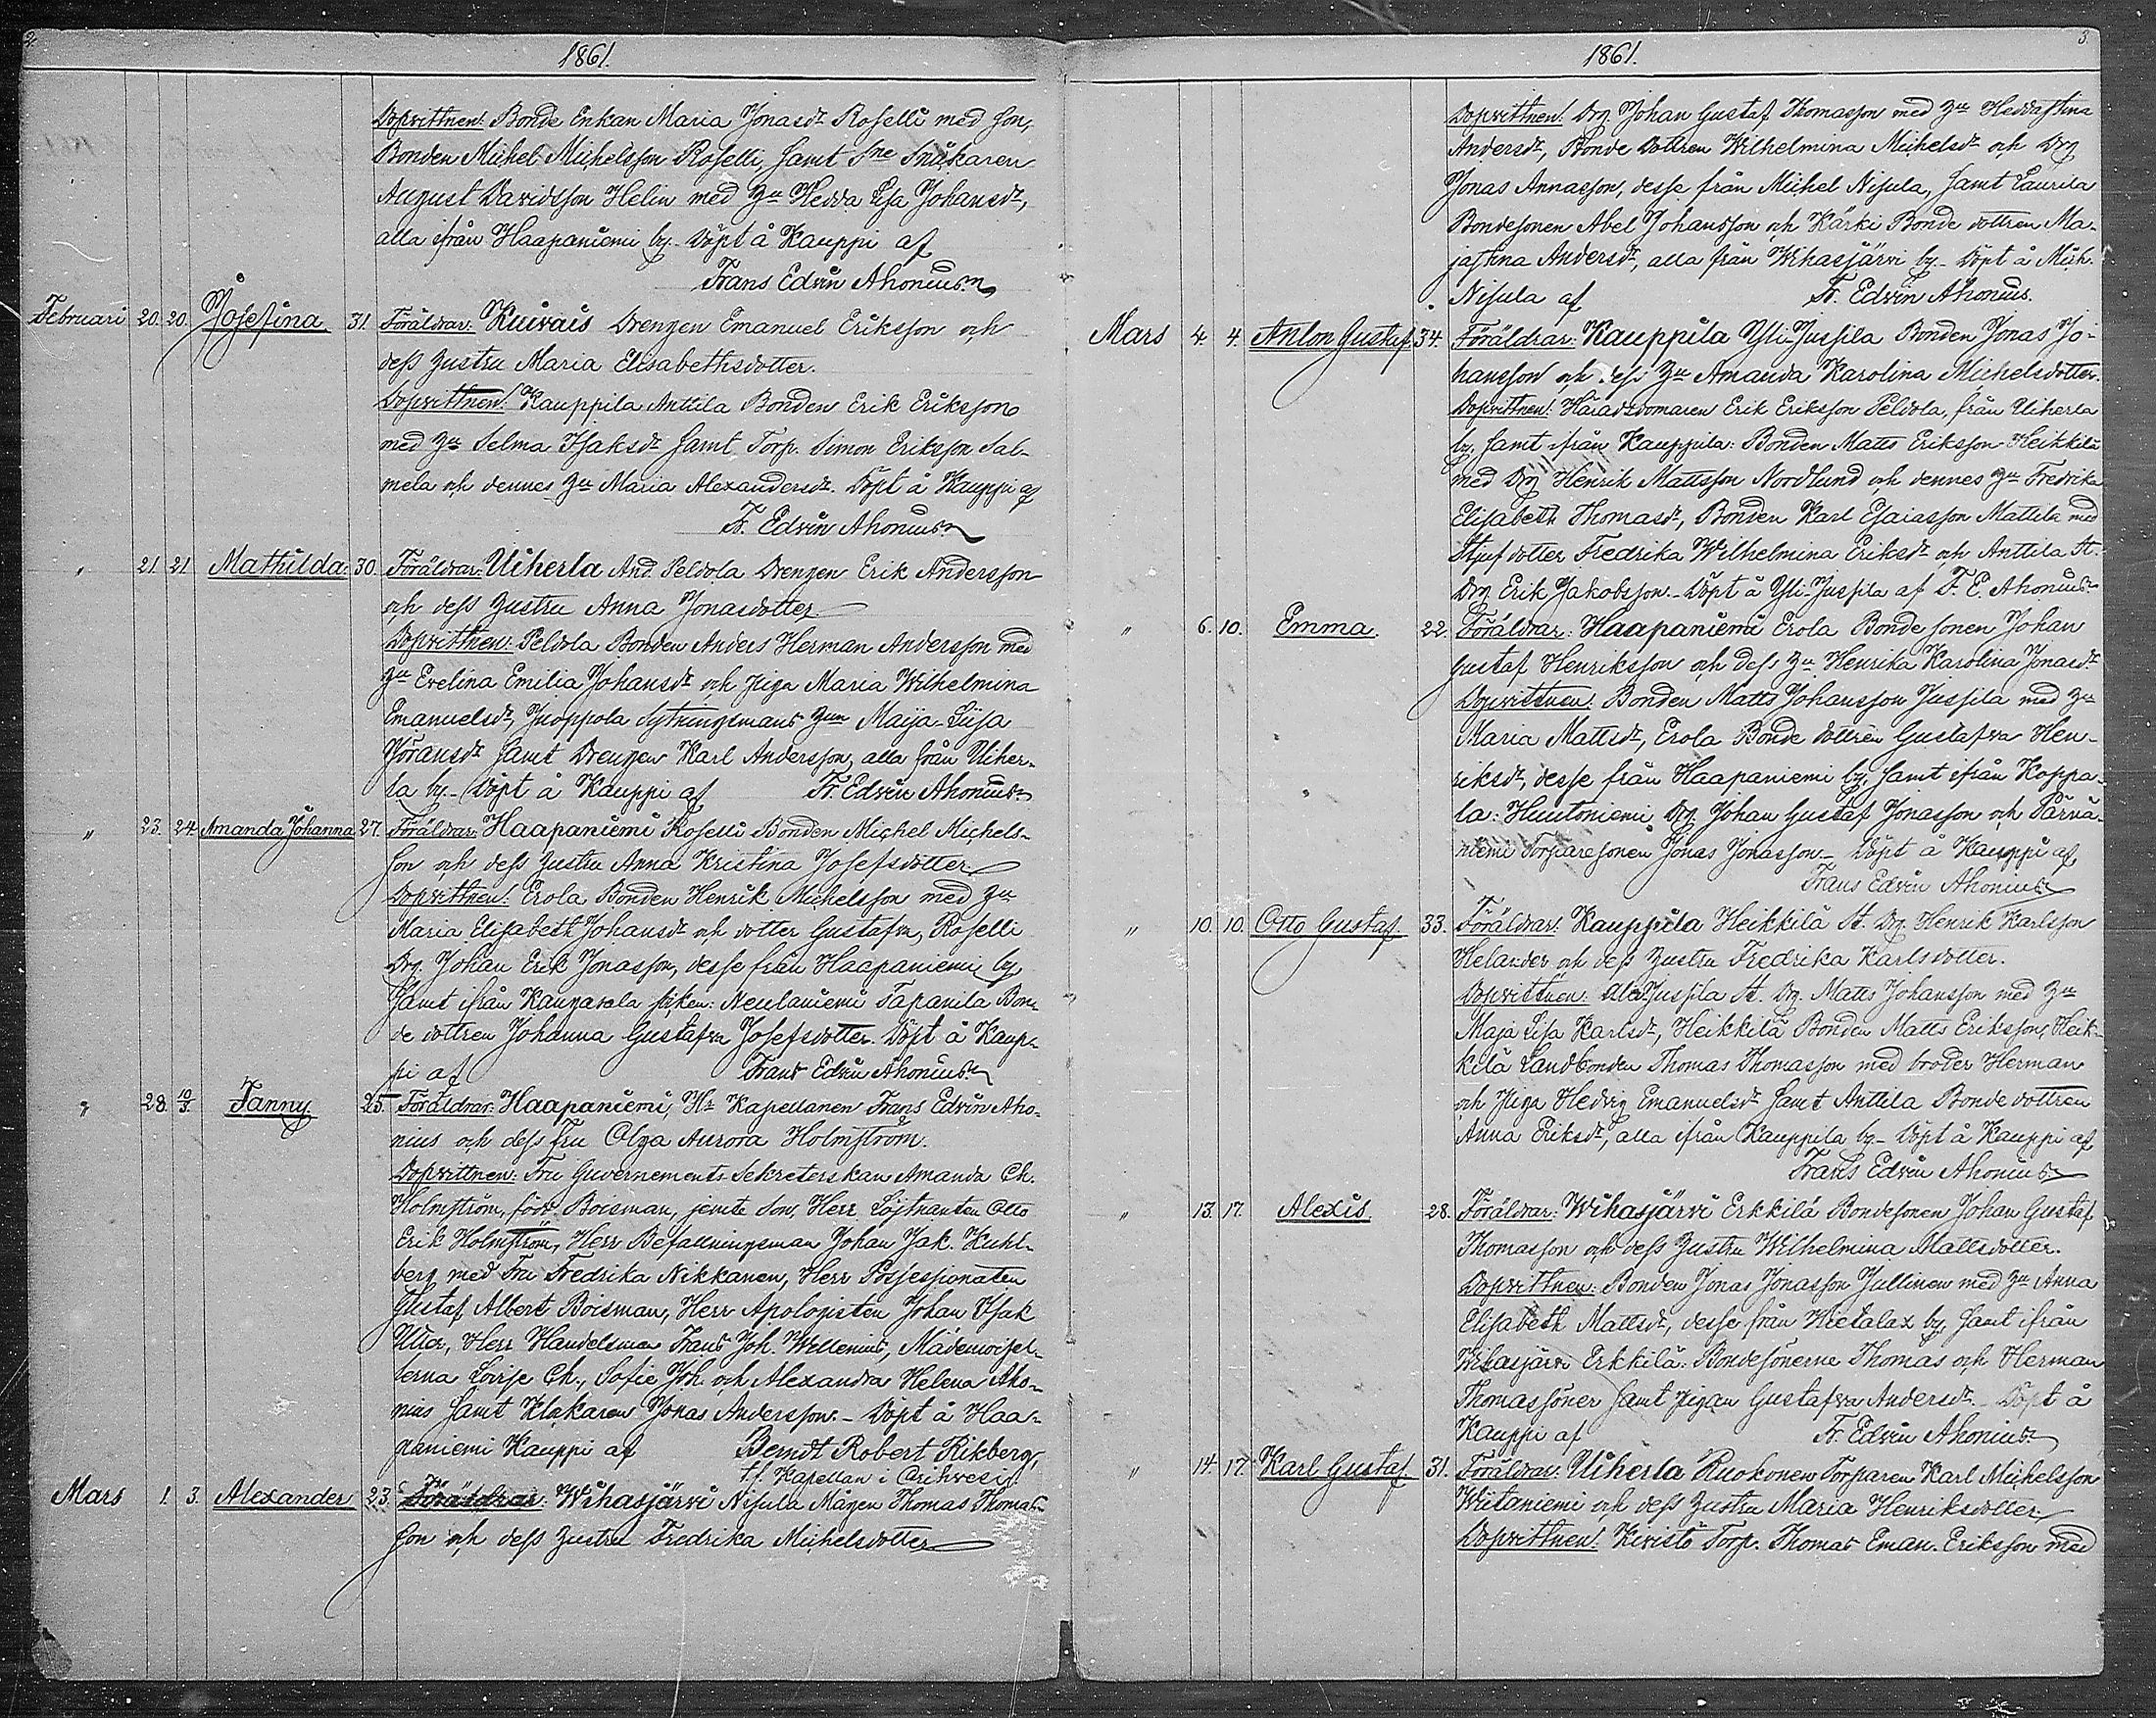 2.
1861.
Dopvittnen: Bonde Enkan Maria Jonasdr Roselli med son,
Bonden Michel Michelsson Roselli, samt Sne Snickaren
August Davidsson Helin med Hu Hedda Lisa Johansdr,
alla ifrån Haapaniemi by. Döpt å Kauppi af
Frans Edvin Ahonius.
Februari 20. 20. Josefina 31. Föräldrar: Kuivais Drengen Emanuel Eriksson och
dess Hustru Maria Elisabethsdotter.
Dopvittnen: Kauppila Anttila Bonden Erik Eriksson
med Hu Selma Isaksdr samt Torp. Simon Eriksson Sal-
mela och dennes Hu Maria Alexandersdr. Döpt å Kauppi af
Fr. Edvin Ahonius.
" 21. 21. Mathilda 30. Föräldrar: Uiherla And. Peldola Drengen Erik Andersson
och dess Hustru Anna Jonasdotter
Dopvittnen: Peldola Bonden Anders Herman Andersson med
Hu Evelina Emilia Johansdr och Piga Maria Wilhelmina
Emanuelsdr, Juoppola Sytningsmans Hun Maija-Liisa
Göransdr samt Drengen Karl Andersson, alla från Uiher-
la by. Döpt å Kauppi af Fr. Edvin Ahonius.
" 23. 24. Amanda Johanna 27. Föräldrar: Haapaniemi Roselli Bonden Michel Michels-
son och dess Hustru Anna Kristina Josefsdotter
Dopvittnen: Erola Bonden Henrik Michelsson med Hu
Maria Elisabeth Johansdr och dotter Gustafva, Roselli
Drg. Johan Erik Jonasson, desse från Haapaniemi by,
samt ifrån Kangasala socken: Neulaniemi Tapanila Bon-
de dottren Johanna Gustafva Josefsdotter. Döpt å Kaup-
pi af Frans Edvin Ahonius.
" 28. 10/3. Fanny 25. Föräldrar: Haapaniemi, Hr Kapellanen Frans Edvin Aho-
nius och dess Fru Olga Aurora Holmström.
Dopvittnen: Fru Guvernements Sekreterskan Amanda Ch.
Holmström, född Boisman, jemte Son, Herr Löjtnanten Otto
Erik Holmström, Herr Befallningsman Johan Jak. Kuhl-
berg med Fru Fredrika Nikkanen, Herr Possessionaten
Gustaf Albert Boisman, Herr Apologisten Johan Isak
Uder, Herr Handelsman Frans Joh. Wellenius, Mademoisel-
lerna Lovise Ch., Sofie Joh. och Alexandra Helena Aho-
nius samt Klokaren Jonas Andersson. Döpt å Haa-
paniemi Kauppi af Berndt Robert Rikberg,
t.f. Kapellan i Orihvesi
Mars 1. 3. Alexander 23. Föräldrar: Wihasjärvi Nisula Mågen Thomas Thomas-
son och dess Hustru Fredrika Michelsdotter
3.
1861.
Dopvittnen: Drg Johan Gustaf Thomasson med Hu Heddastina
Andersdr, Bonde dottren Wilhelmina Michelsdr och Drg
Jonas Annasson, desse från Michel Nisula, samt Laurila
Bondesonen Abel Johansson och Kärki Bonde dottren Ma-
jastina Andersdr, alla från Wihasjärvi by. Döpt å Mich.
Nisula af Fr. Edvin Ahonius.
Mars 4. 4. Anton Gustaf 34. Föräldrar: Kauppila Yli-Jussila Bonden Jonas Jo-
hansson och dess Hu Amanda Karolina Michelsdotter.
Dopvittnen: Häradsdomaren Erik Eriksson Peldola, från Uiherla
by, samt ifrån Kauppila: Bonden Matts Eriksson Heikkilä
med Drg Henrik Mattsson Nordlund och dennes Hu Fredrika
Elisabeth Thomasdr, Bonden Karl Esaiasson Mattila med
Stjuf dotter Fredrika Wilhelmina Eriksdr och Anttila St.
Drg. Erik Jakobsson. Döpt å Yli-Jussila af F. E. Ahonius.
" 6. 10. Emma. 22. Föräldrar: Haapaniemi Erola Bonde sonen Johan
Gustaf Henriksson och dess Hu Henrika Karolina Jonasdr
Dopvittnen: Bonden Matts Johansson Jussila med Hu
Maria Mattsdr, Erola Bonde dottren Gustafva Hen-
riksdr, desse från Haapaniemi by, samt ifrån Koppa-
la: Huutoniemi Drg. Johan Gustaf Jonasson och Pärnä-
niemi Torparesonen Jonas Jonasson. Döpt å Kauppi af
Frans Edvin Ahonius.
" 10. 10. Otto Gustaf. 33. Föräldrar: Kauppila Heikkilä St. Drg. Henrik Karlsson
Helander och dess Hustru Fredrika Karlsdotter.
Dopvittnen: Ala-Jussila St. Drg. Matts Johansson med Hu
Maja Lisa Karlsdr, Heikkilä Bonden Matts Eriksson, Heik-
kilä Landbonden Thomas Thomasson med broder Herman
och Piga Hedvig Emanuelsdr samt Anttila Bonde dottren
Anna Eriksdr, alla ifrån Kauppila by. Döpt å Kauppi af
Frans Edvin Ahonius.
" 13. 17. Alexis. 28. Föräldrar: Wihasjärvi Erkkilä Bondesonen Johan Gustaf
Thomasson och dess Hustru Wilhelmina Mattsdotter.
Dopvittnen: Bonden Jonas Jonasson Jullinen med Hu Anna
Elisabeth Mattsdr, desse från Hietalax by, samt ifrån
Wihasjärvi Erkkilä: Bondesönerne Thomas och Herman
Thomassöner samt Pigan Gustafva Andersdr. Döpt å
Kauppi af Fr. Edvin Ahonius.
" 14. 17. Karl Gustaf 31. Föräldrar: Uiherla Ruokonen Torparen Karl Michelsson
Wiitaniemi och dess Hustru Maria Henriksdotter
Dopvittnen: Kivistö Torp. Thomas Eman. Eriksson med